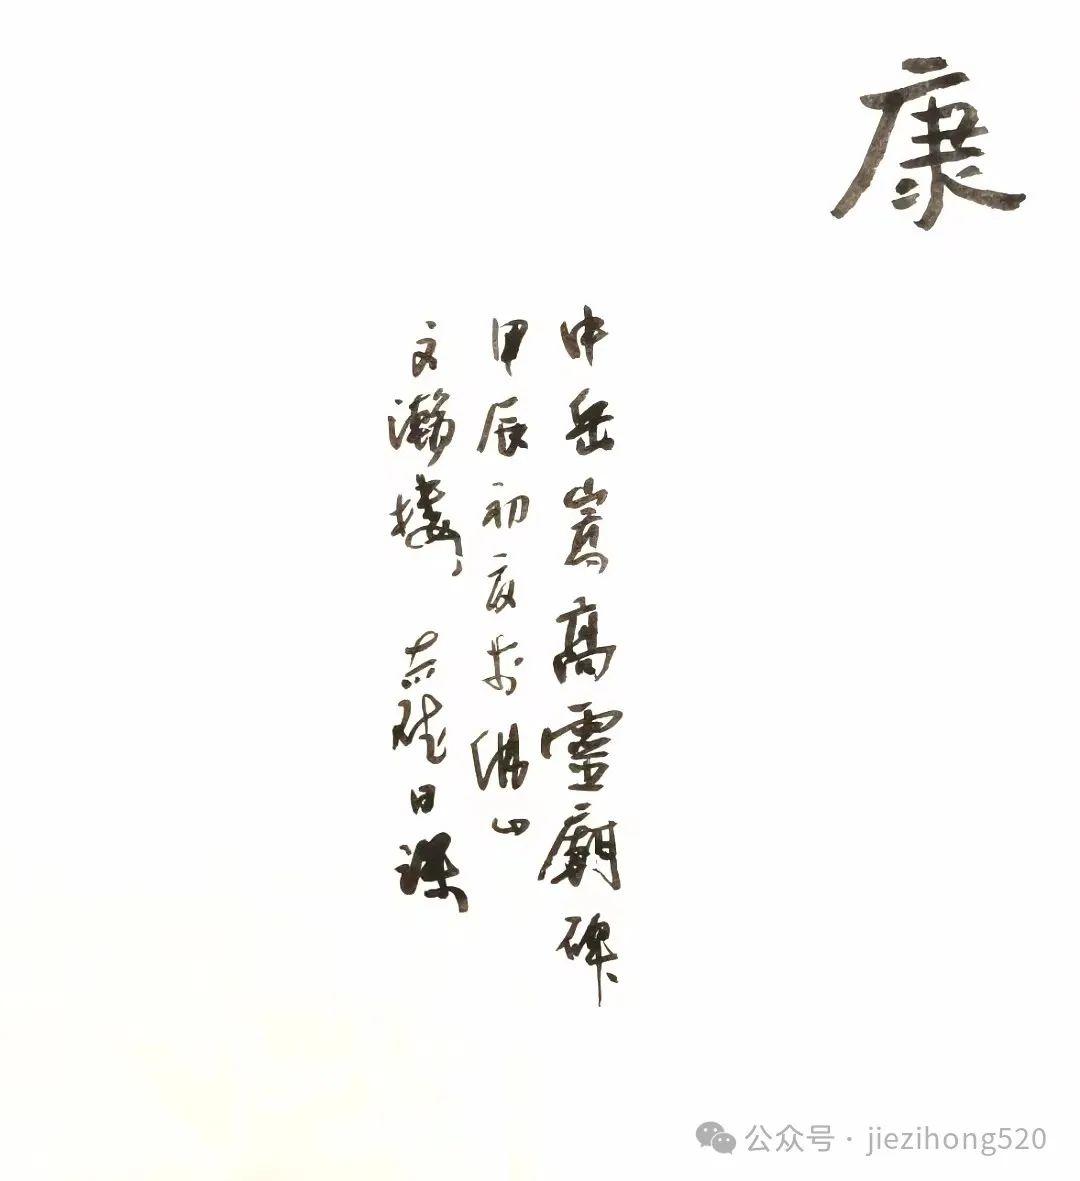 康
中岳嵩高靈廟碑
甲辰初夏於佛山
文瀚楼 日課
公众号 · jiezihong520